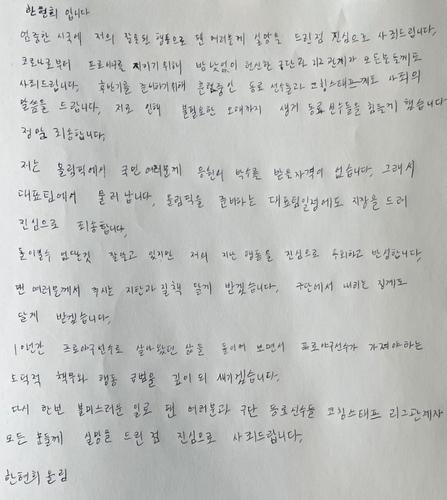 한현희 입니다
엄중한 시국에 저의 잘못된 행동으로 팬 여러분께 실망을 드린점 진심으로 사죄드립니다.
코로나로부터 프로야구를 지키기위해 밤낮없이 헌신한 구단과 리그관계자 모든분들께도
사죄드립니다. 후반기를 준비하기위해 훈련중인 동료 선수들과 코칭스태프께도 사죄의
말씀을 드립니다, 저로 인해 불필요한 오해까지 생겨 동료선수들을 힘들게 했습니다
정말 죄송합니다.
저는 올림픽에서 국민 여러분께 응원의 박수를 받을자격이 없습니다. 그래서
대표팀에서 물러 납니다, 올림픽을 준비하는 대표팀일정에도 지장을 드려
진심으로 죄송합니다,
돌이킬수 없다는것 잘알고 있지만 저의 지난 행동을 진심으로 후회하고 반성합니다,
팬 여러분께서 주시는 지탄과 질책 달게 받겠습니다, 구단에서 내리는 징계도
달게 받겠습니다,
10년간 프로야구선수로 살아왔던 삶을 돌이켜 보면서 프로야구선수가 가져야하는
도덕적 책무와 행동 규범을 깊이 되 새기겠습니다.
다시 한번 불미스러운 일로 팬 여러분과 구단 동료선수들 코칭스태프 리그관계자
모든 분들께 실망을 드린 점 진심으로 사죄드립니다,
한현희 올림